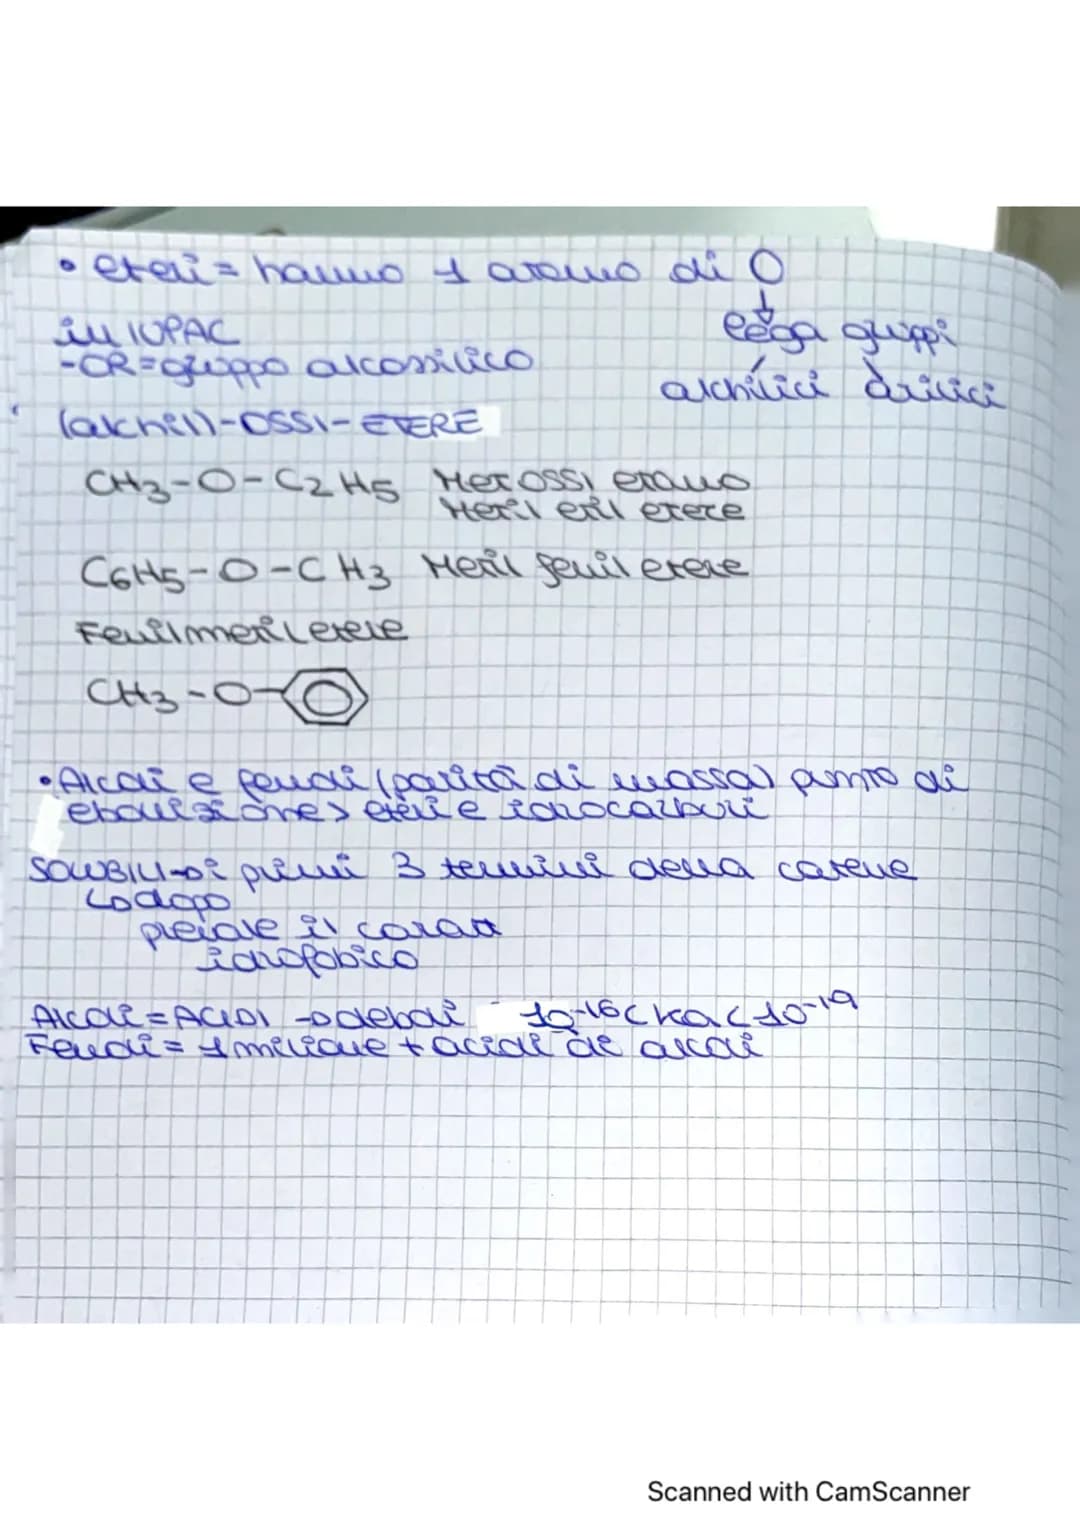 • eteri = hanno 1 atomo di O
↓
lega gruppi
alchilici arilici
in IUPAC
-OR = gruppo alcossilico
(alchil)-OSSI-ETERE
CH3-O-C2H5 Metossi etano
Metil etil etere
C6H5-O-CH3 Metil fenil etere
Fenilmetiletere
CH3-O-
• Alcoli e fenoli (parità di massa) punto di
ebollizione > eteri e idrocarburi
SOLUBILI → i primi 3 termini della catene
↳ dopo
preiale il caratt
idrofobico
Alcoli = ACIDI → deboli 10-16 < ka < 10-19
Fenoli = 1 milione + acidi de alcoli
Scanned with CamScanner